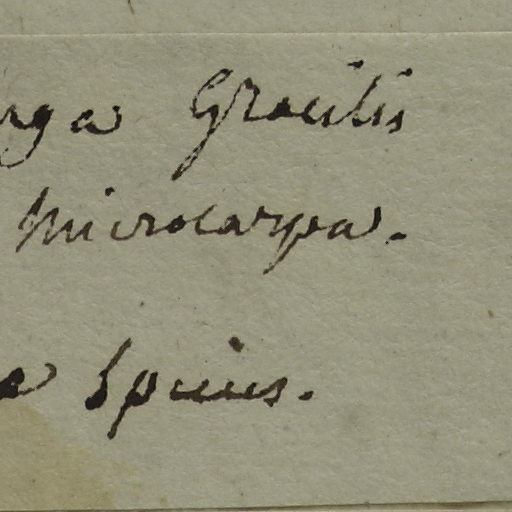 rga Gracilis
Microcarpa.
a Spicies.